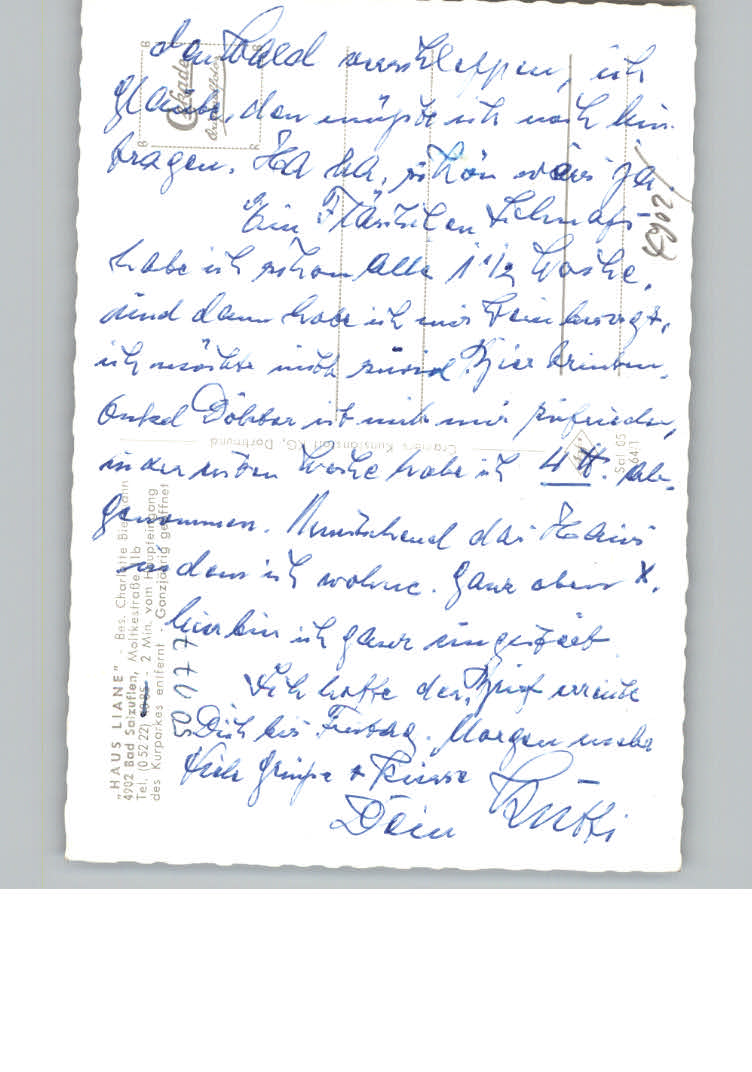 den Wald verschleppen, ich
glaube, den müßte ich noch hin-
tragen. Ha ha, schön wär's ja.
Ein Fläschchen Schnaps
habe ich schon alle 1 1/2 Woche,
und dann habe ich mir Wein besorgt,
ich möchte nicht soviel Bier trinken.
Onkel Doktor ist mit mir zufrieden,
in der ersten Woche habe ich 4 ℔. ab-
genommen. Umstehend das Haus
in dem ich wohne. Ganz oben X.
hier bin ich ganz ungestört.
Ich hoffe der Brief erreicht
Dich bis Freitag. Morgen mehr
Viele Grüße + Küsse
Dein Mutti
4902/
Cekade
Cramers Kunstanstalt KG, Dortmund
Sal 05
64/1
"HAUS LIANE" - Bes. Charlotte Biermann
4902 Bad Salzuflen, Moltkestraße 1b
Tel. (0 52 22) - 2 Min. vom Haupteingang
des Kurparkes entfernt - Ganzjährig geöffnet